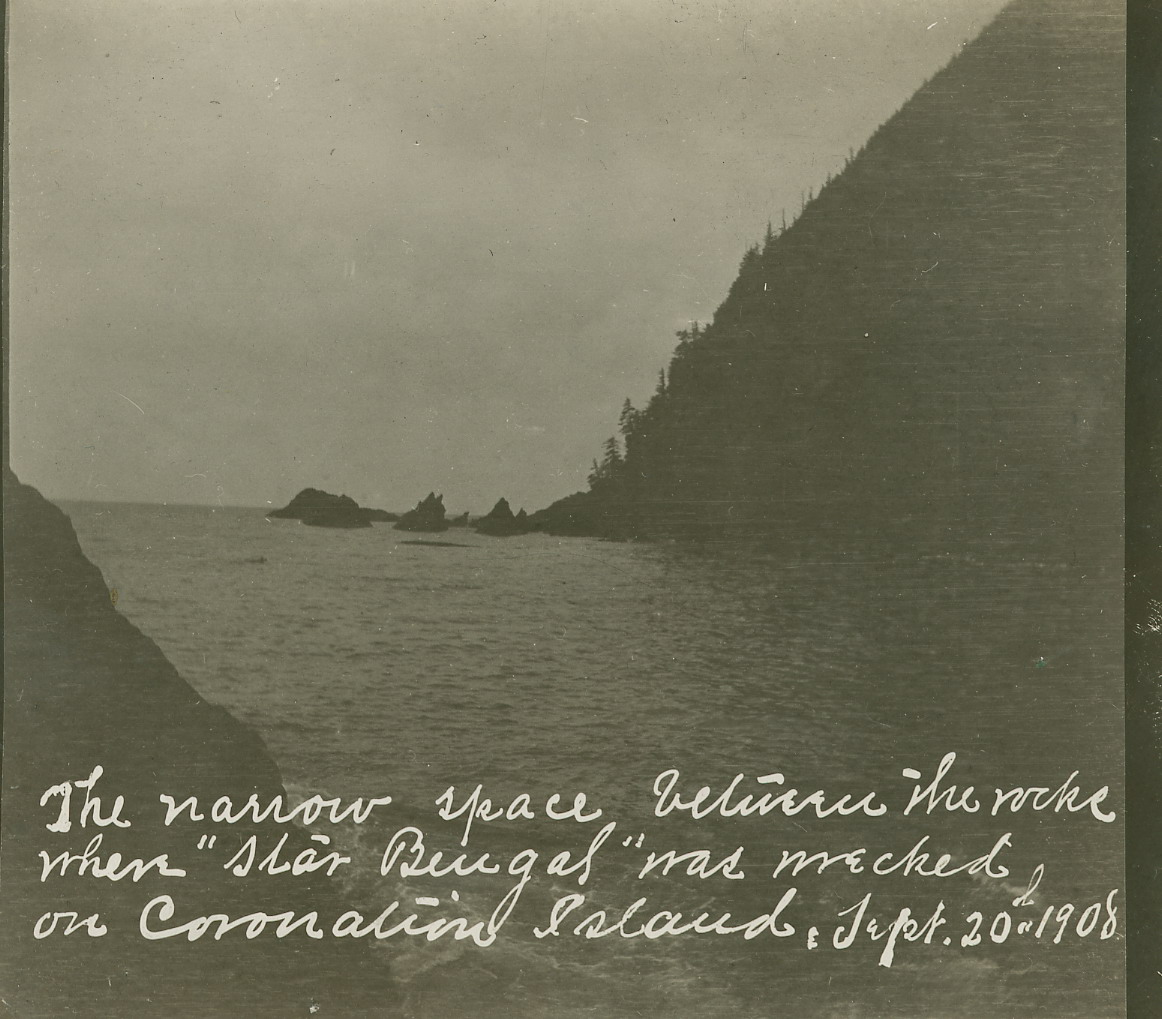 The narrow space between the rocks
where "Star Bengal" was wrecked
on Coronation Island, Sept. 20th 1908